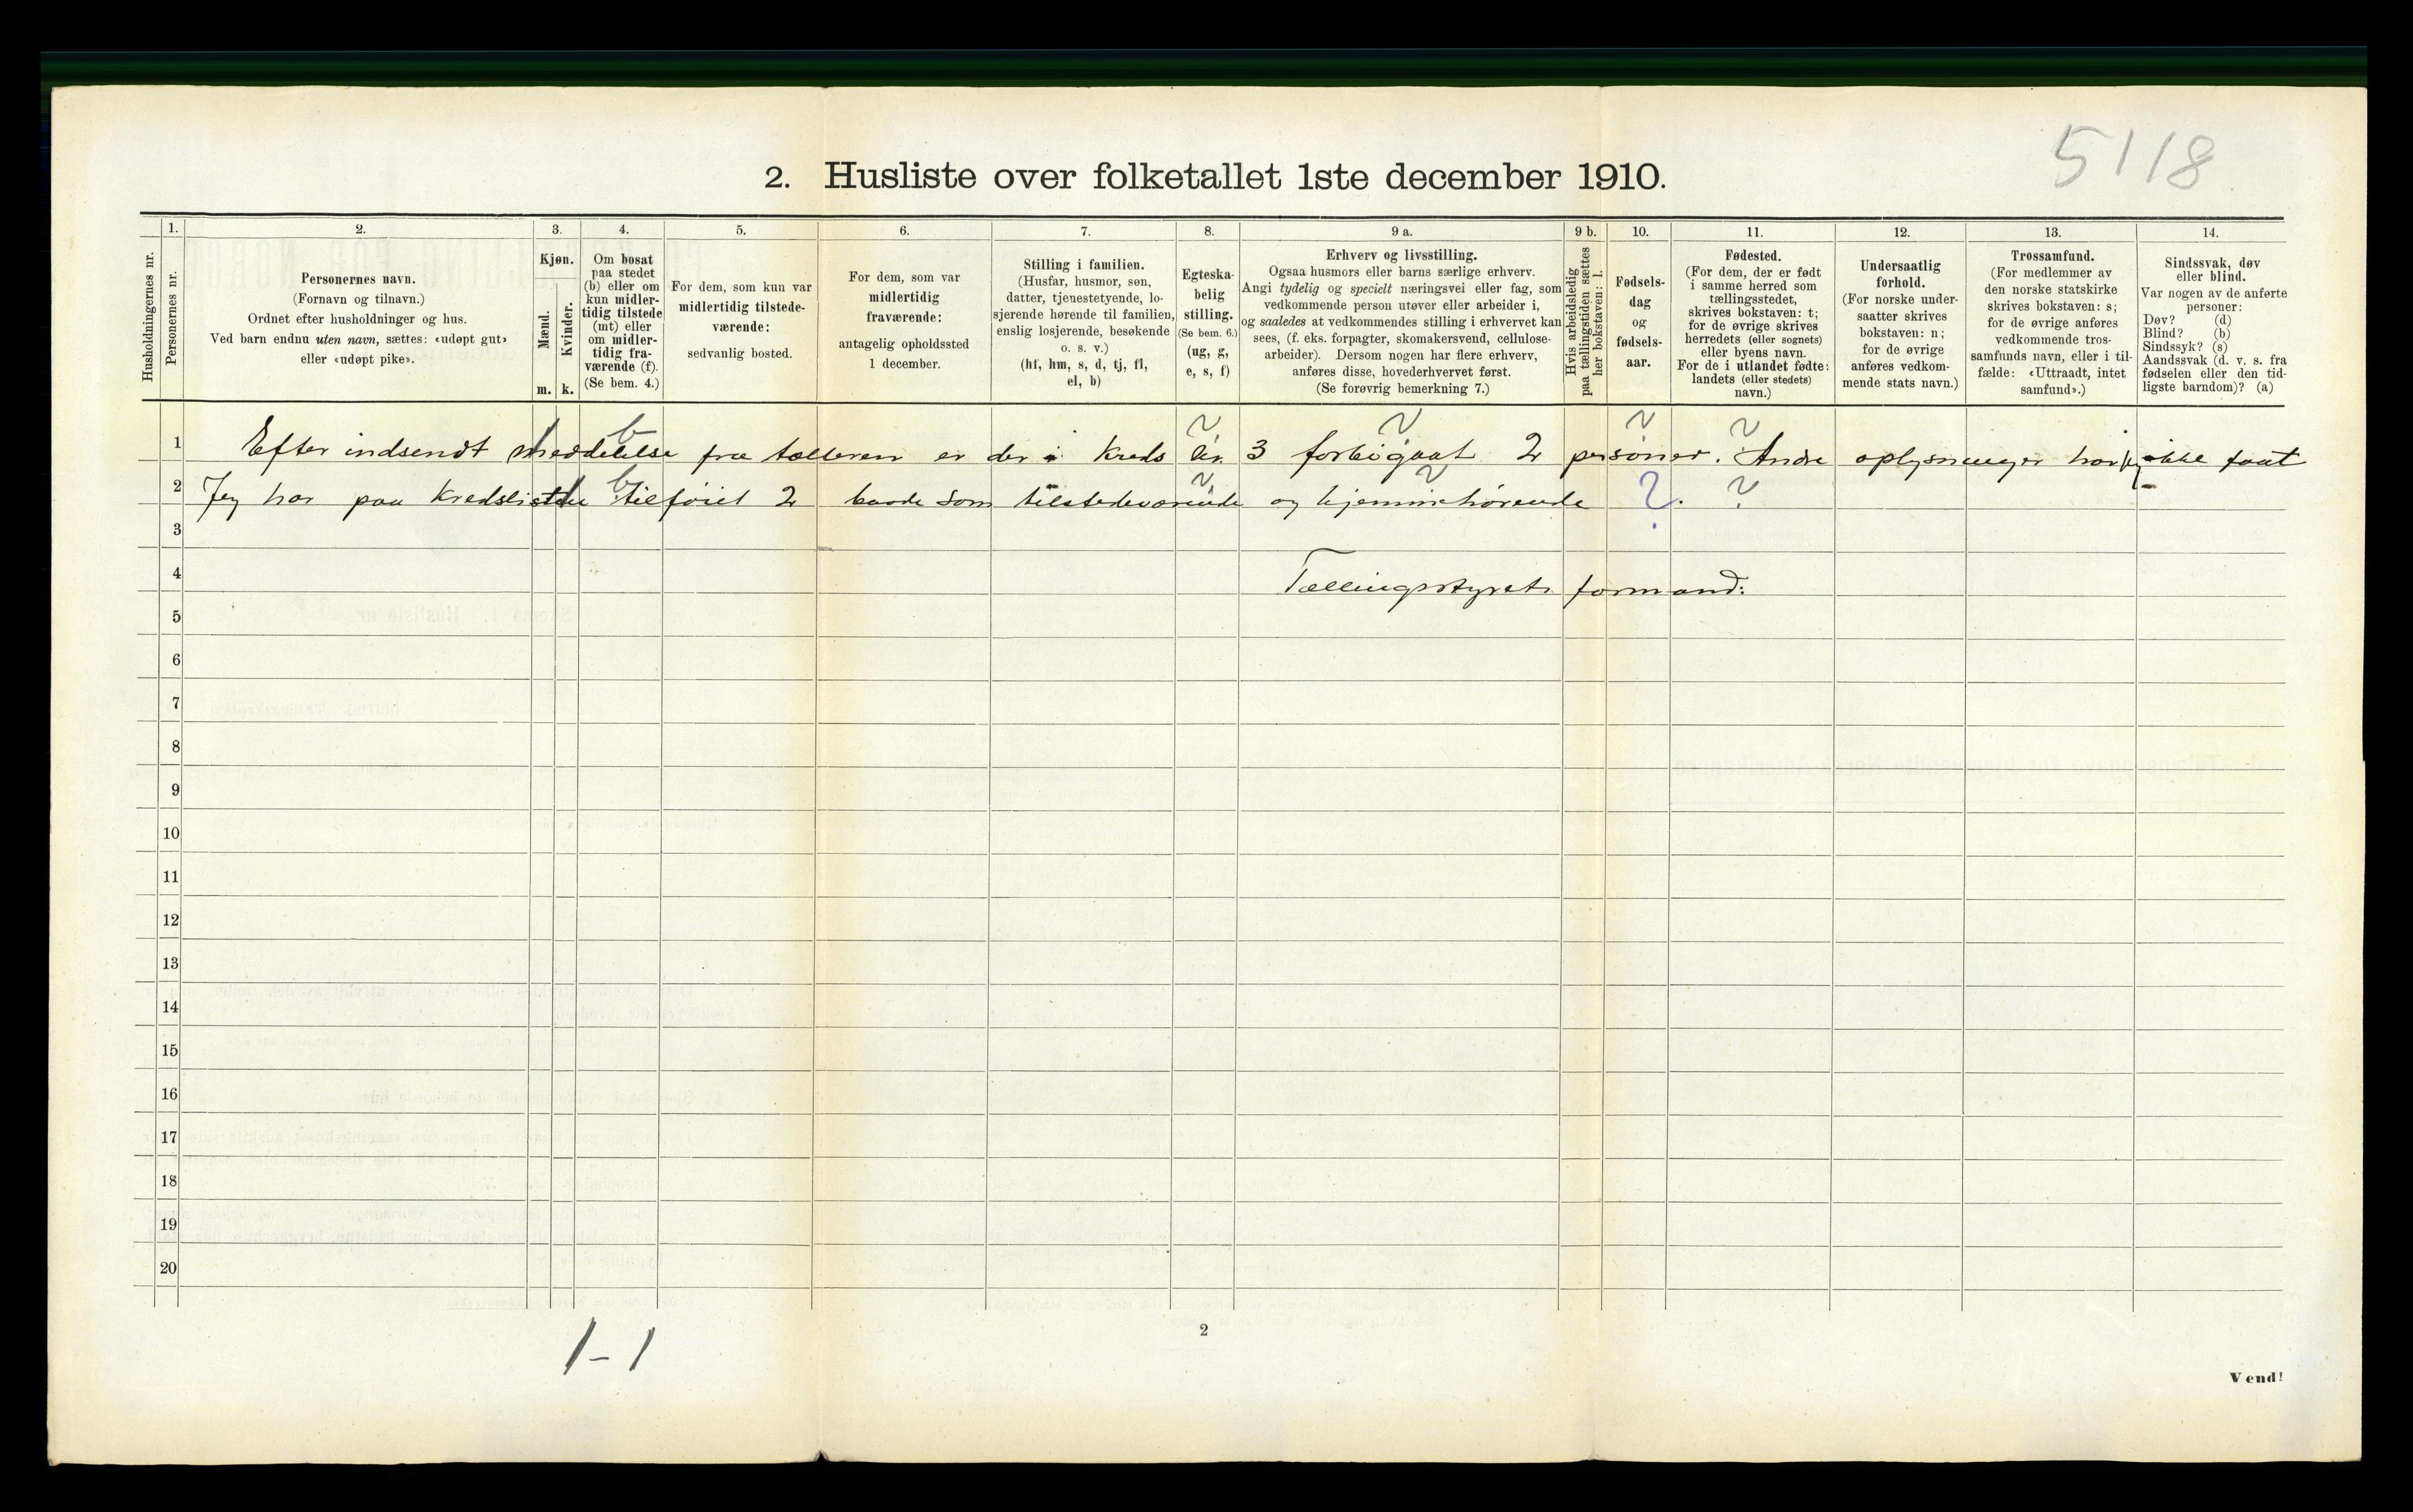 5118
2. Husliste over folketallet 1ste december 1910.
Husholdningernes nr.
1.
Personernes nr.
2.
Personernes navn.
(Fornavn og tilnavn.)
Ordnet efter husholdninger og hus.
Ved barn endnu uten navn, sættes: «udøpt gut»
eller «udøpt pike».
3.
Kjøn.
Mænd.
Kvinder.
m. k.
4.
Om bosat
paa stedet
(b) eller om
kun midler-
tidig tilstede
(mt) eller
om midler-
tidig fra-
værende (f).
(Se bem. 4.)
5.
For dem, som kun var
midlertidig tilstede-
værende:
sedvanlig bosted.
6.
For dem, som var
midlertidig
fraværende:
antagelig opholdssted
1 december.
7.
Stilling i familien.
(Husfar, husmor, søn,
datter, tjenestetyende, lo-
sjerende hørende til familien,
enslig losjerende, besøkende
o. s. v.)
(hf, hm, s, d, tj, fl,
el, b)
8.
Egteska-
belig
stilling.
(Se bem. 6.)
(ug, g,
e, s, f)
9 a.
Erhverv og livsstilling.
Ogsaa husmors eller barns særlige erhverv.
Angi tydelig og specielt næringsvei eller fag, som
vedkommende person utøver eller arbeider i,
og saaledes at vedkommendes stilling i erhvervet kan
sees, (f. eks. forpagter, skomakersvend, cellulose-
arbeider). Dersom nogen har flere erhverv,
anføres disse, hovederhvervet først.
(Se forøvrig bemerkning 7.)
9 b.
Hvis arbeidsledig
paa tællingstiden sættes
her bokstaven: l.
10.
Fødsels-
dag
og
fødsels-
aar.
11.
Fødested.
(For dem, der er født
i samme herred som
tællingsstedet,
skrives bokstaven: t;
for de øvrige skrives
herredets (eller sognets)
eller byens navn.
For de i utlandet fødte:
landets (eller stedets)
navn.)
12.
Undersaatlig
forhold.
(For norske under-
saatter skrives
bokstaven: n;
for de øvrige
anføres vedkom-
mende stats navn.)
13.
Trossamfund.
(For medlemmer av
den norske statskirke
skrives bokstaven: s;
for de øvrige anføres
vedkommende tros-
samfunds navn, eller i til-
fælde: «Uttraadt, intet
samfund».)
14.
Sindssvak, døv
eller blind.
Var nogen av de anførte
personer:
Døv? (d)
Blind? (b)
Sindssyk? (s)
Aandssvak (d. v. s. fra
fødselen eller den tid-
ligste barndom)? (a)
b ~ ~ ~ ~
1 Efter indsendt meddelelse fra tælleren er der i Kreds nr. 3 forbigaat 2 personer. Andre oplysninger har jeg ikke faat
b ~ ~
2 Jeg har paa Kredslisten tilføiet 2 baade som tilstedeværende og hjemmehørende ?. ?
3
4 Tællingsstyrets formand:
5
6
7
8
9
10
11
12
13
14
15
16
17
18
19
20
1-1
2
Vend!